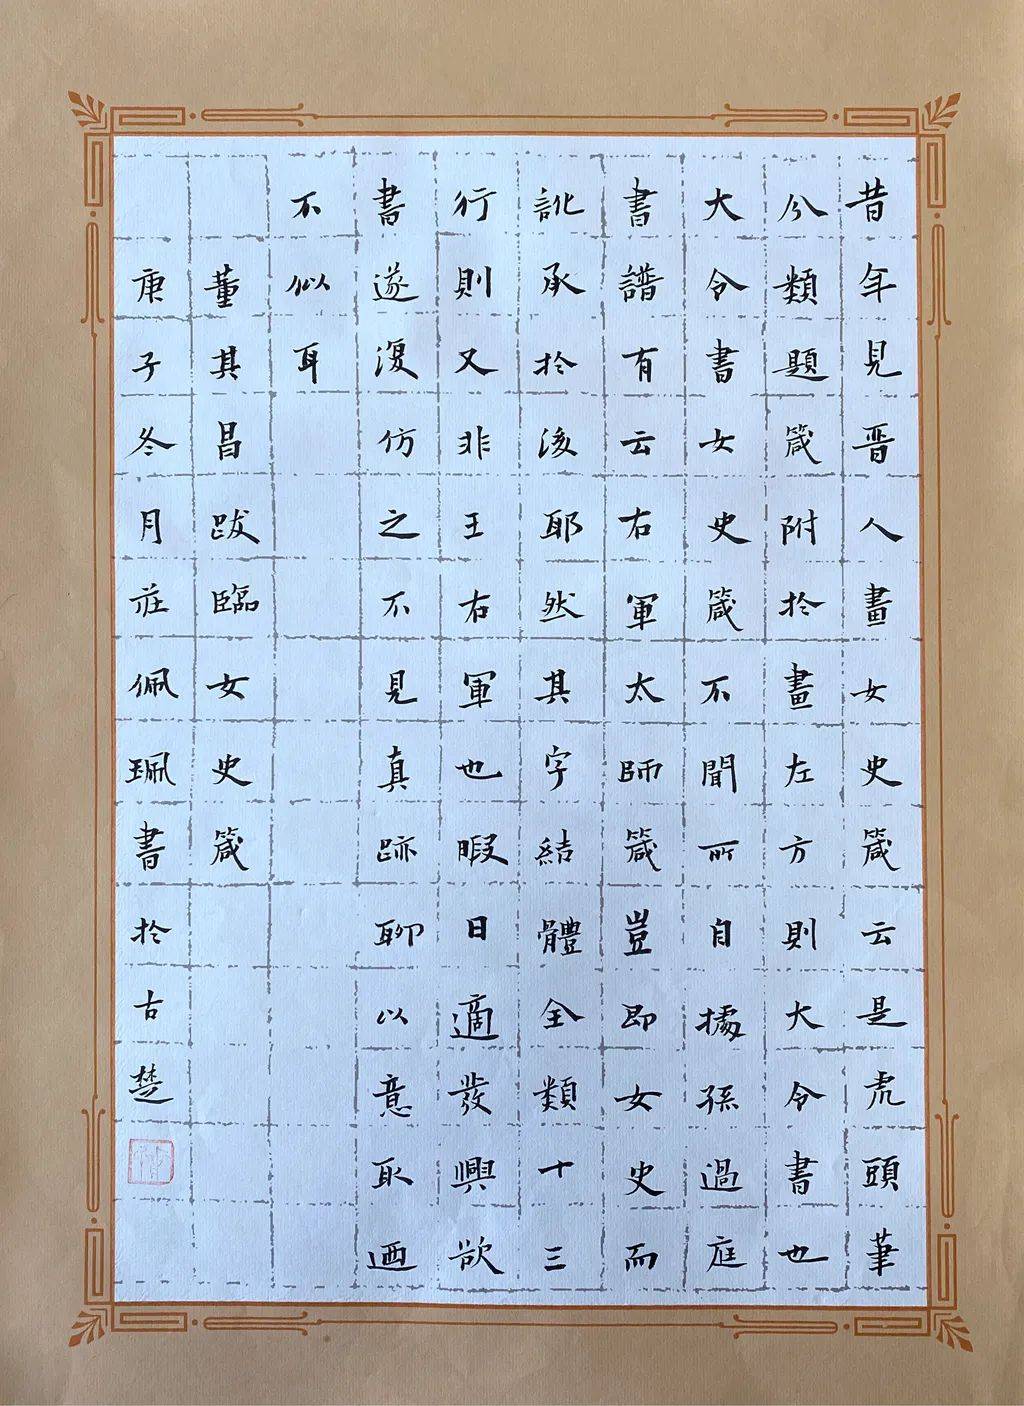 昔年見晋人畫女史箴云是虎頭筆
分類題箴附於畫左方則大令書也
大令書女史箴不聞所自據孫過庭
書譜有云右軍太師箴豈即女史而
訛承於後耶然其字結體全類十三
行則又非王右軍也暇日適發興欲
書遂復仿之不見真跡聊以意取迺
不似耳
董其昌跋臨女史箴
庚子冬月莊佩珮書於古楚